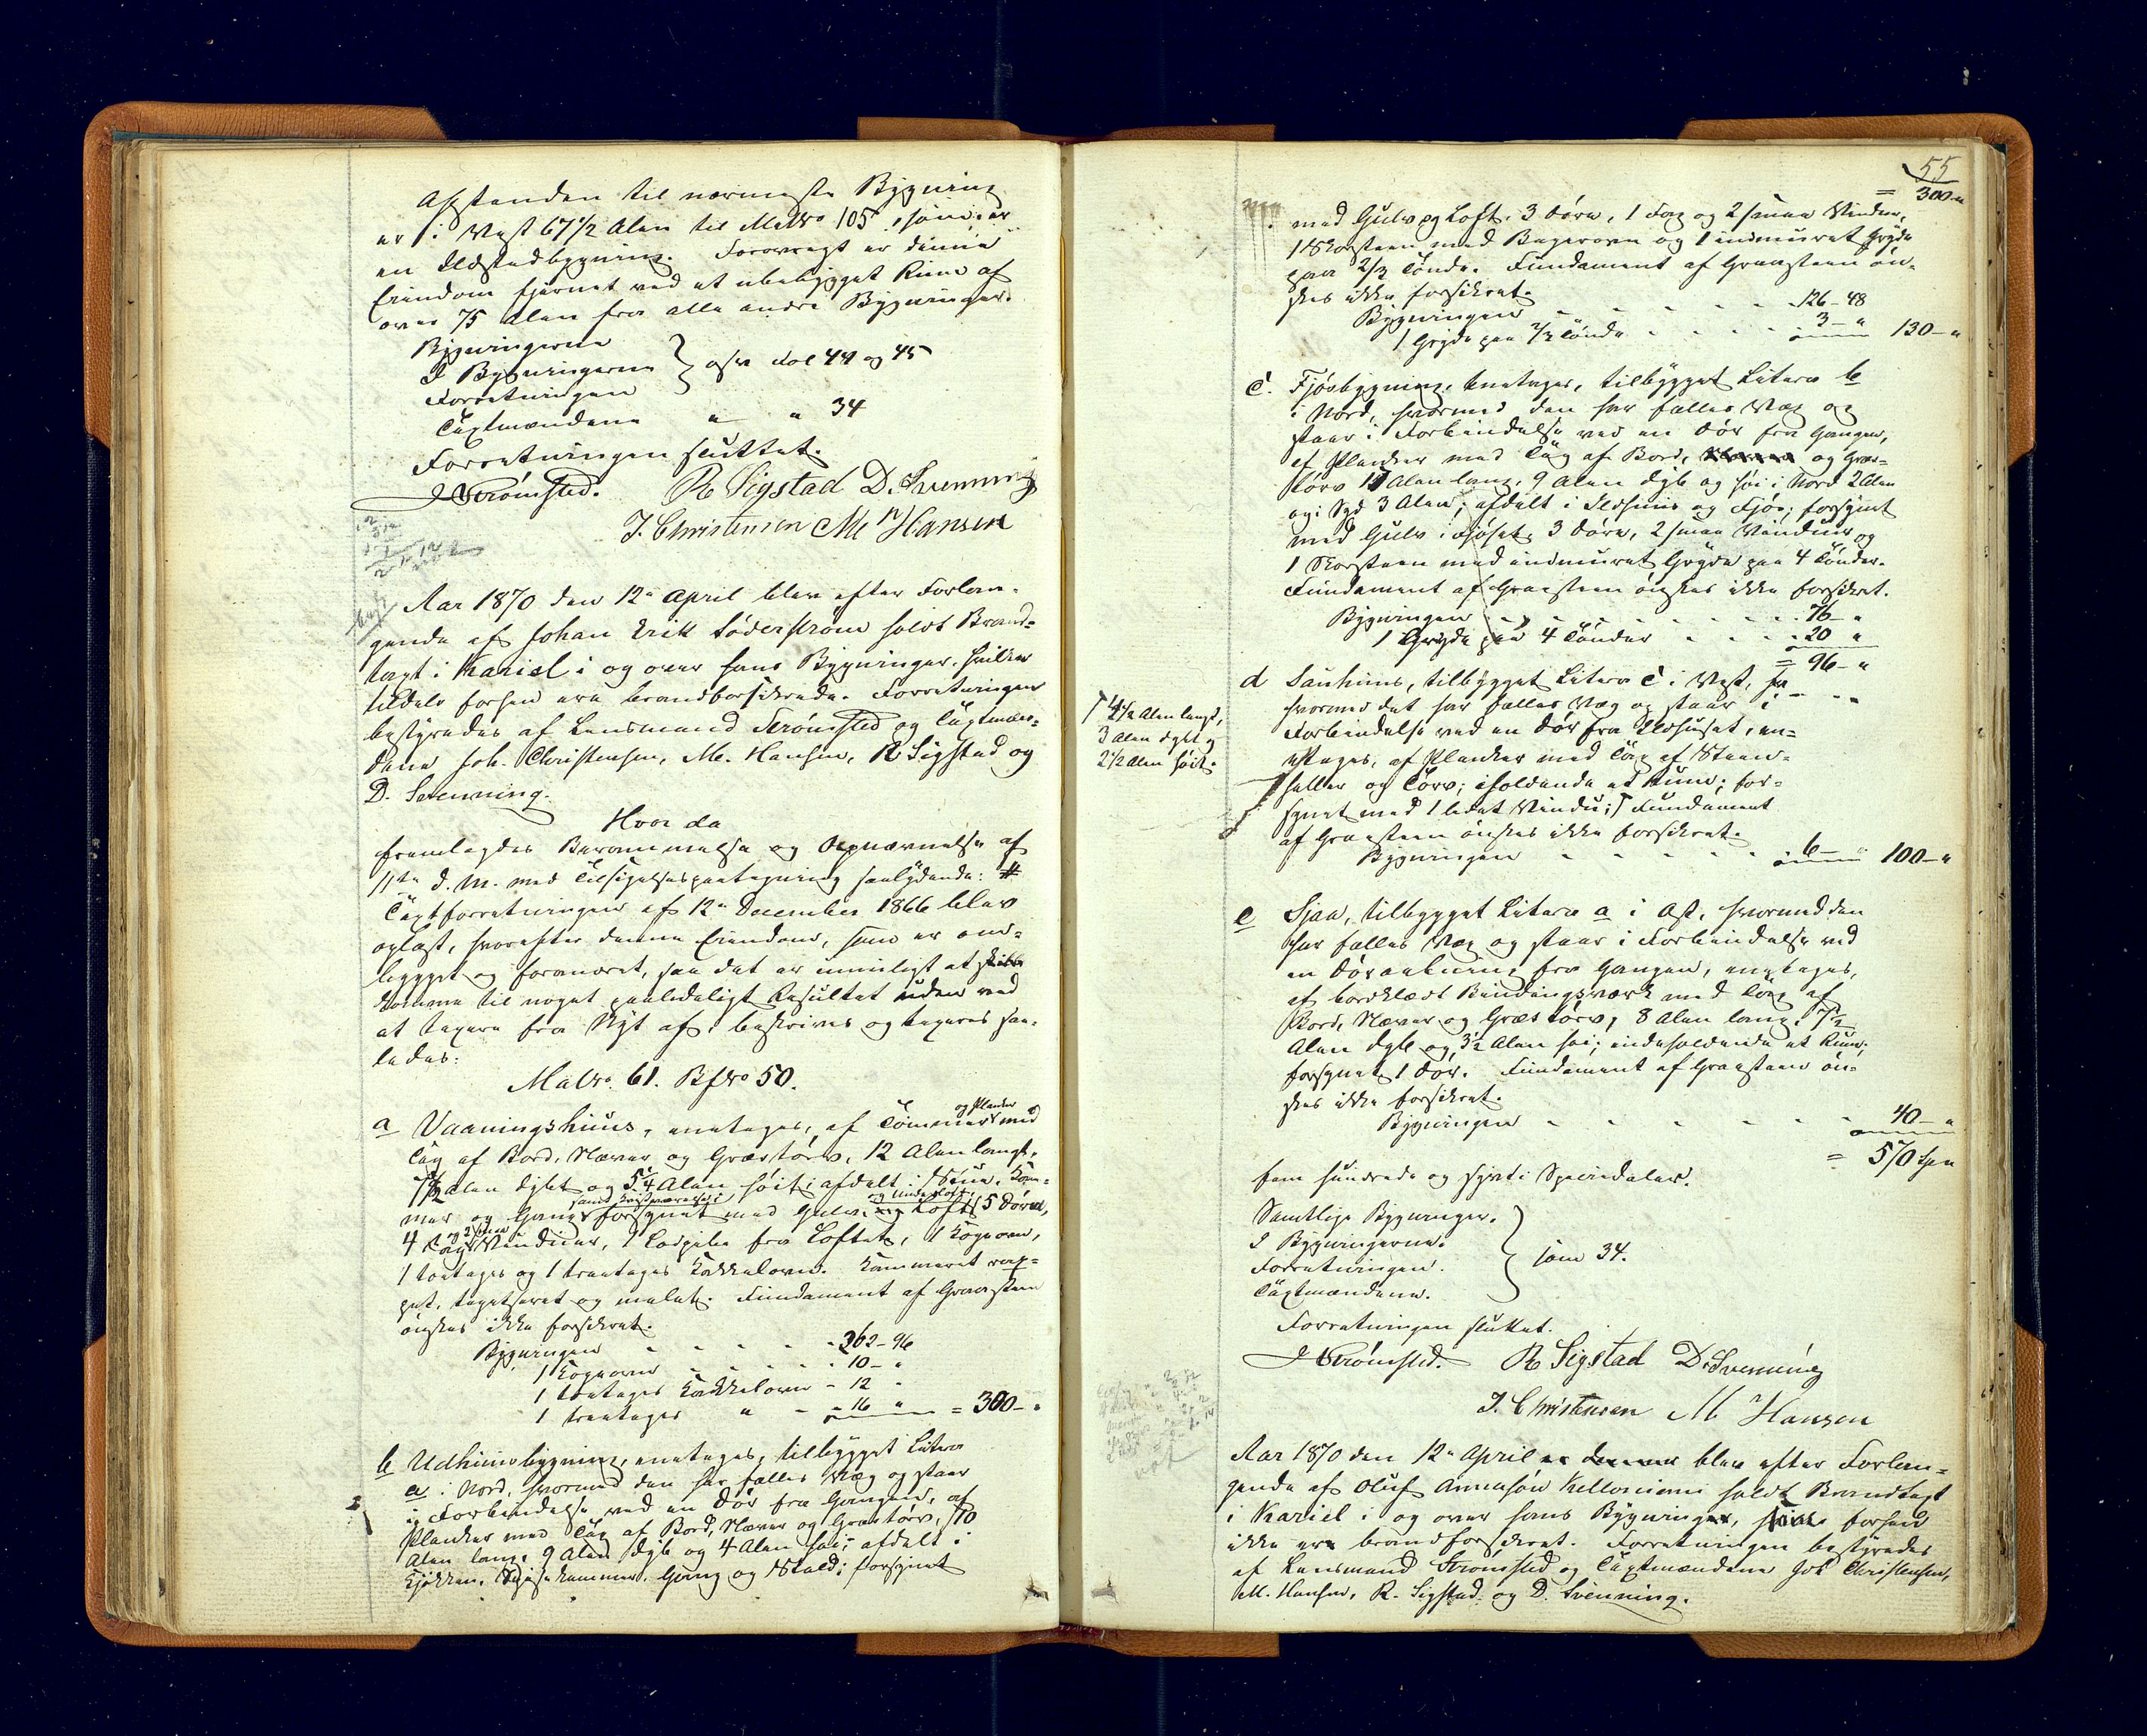 Afstanden til nærmeste Bygning
er i Vest 67 1/2 Alen til MatNo 105, som er
en Ildstedbygning. Forøvrigt er denne
Eiendom fjernet ved et ubebygget Rum af
over 75 Alen fra alle andre Bygninger.
Bygningerne
I Bygningerne } osv Fol 44 og 45
Forretningen
Taxtmændene " " 34
Forretningen sluttet.
Strømsted. R Sigstad D. Svenning
J. Christensen M Hansen
Aar 1870 den 12te April blev efter Forlan-
gende af Johan Erik Söderström holdt Brand-
taxt i Kariel i og over hans Bygninger, hvilke
tildels forhen ere brandforsikrede. Forretningen
bestyredes af Lensmand Strømsted og Taxtmæn-
dene Joh. Christensen, M. Hansen, R Sigstad og
D. Svenning.
Hvor da
fremlagdes Berammelse og Opnævnelse af
11te d. M. med Tilsigelsespaategning saalydende: #
Taxtforretningen af 12te December 1866 blev
oplæst, hvorefter denne Eiendom, som er om-
bygget og forandret, saa det er umuligt at
komme til noget paalideligt Resultat uden ved
at taxere fra Nyt af, beskrives og taxeres saa-
ledes:
MatNo. 61. BfNo 50.
a Vaaningshuus, enetages, af Tømmer og Planker med
Tag af Bord, Næver og Græstørv, 12 Alen langt,
7 1/2 Alen dybt og 5 1/4 Alen høit; afdelt i Stue, Kam-
mer og Gang samt Kvistværelse; forsynet med Gulv, og Underloft, Loft 5 Døre,
4 Fag og 2 smaa Vinduer, 1 Ladpibe fra Loftet, 1 Kogeovn,
1 toetages og 1 treetages Kakkelovn. Kammeret rap-
pet, tapetseret og malet. Fundament af Graasteen
ønskes ikke forsikret.
Bygningen - - - - 262-96
1 Kogeovn - - - - 10-"
1 toetages Kakkelovn - 12 "
1 treetages " - 16 " = 300-"
b Udhuusbygning, enetages, tilbygget Litera
a i Nord, hvormed den har fælles Væg og staar
i Forbindelse ved en Dør fra Gangen, af
Planker med Tag af Bord, Næver og Græstørv, 10
Alen lang, 9 Alen dyb og 4 Alen høi; afdelt i
Kjøkken, Spisekammer, Gang og Stald; forsynet
55
= 300-"
med Gulv og Loft, 3 Døre, 1 Fag og 2 smaa Vinduer,
1 Skorsteen med Bagerovn og 1 indmuret Gryde
paa 2/3 Tønde. Fundament af Graasteen øn-
skes ikke forsikret.
Bygningen - - - - 126-48
1 Gryde paa 2/3 Tønde - - - - 3-" 130-"
c. Fjøsbygning, enetages, tilbygget Litera b
i Nord, hvormed den har fælles Væg og
staar i Forbindelse ved en Dør fra Gangen,
af Planker med Tag af Bord, og Græs-
tørv 11 Alen lang, 9 Alen dyb og høi i Nord 2 Alen
og i Syd 3 Alen; afdelt i Ildhuus og Fjøs; forsynet
med Gulv i Fjøset, 3 Døre, 2 smaa Vinduer og
1 Skorsteen med indmuret Gryde paa 4 Tønder.
Fundament af Graasteen ønskes ikke forsikret.
Bygningen - - - - 76-"
1 Gryde paa 4 Tønder - - - - 20 "
= 96-"
d Sauhuus, tilbygget Litera c i Vest,
hvormed det har fælles Væg og staar i
Forbindelse ved en Dør fra Ildhuset, en-
etages, af Planker med Tag af Steen-
heller og Tørv; iholdende et Rum; for-
synet med 1 lidet Vindu; Fundament
af Graasteen ønskes ikke forsikret.
4 1/2 Alen langt,
3 Alen dybt og
2 1/2 Alen høit.
Bygningen - - - - 6-" 100-"
e Sjaa, tilbygget Litera a i Øst, hvormed den
har fælles Væg og staar i Forbindelse ved
en Døraabning fra Gangen, enetages,
af bordklædt Bindingsværk med Tag af
Bord, Næver og Græstørv, 8 Alen lang, 7 1/2
Alen dyb og 3 1/2 Alen høi; indeholdende et Rum;
forsynet 1 Dør. Fundament af Graasteen øn-
skes ikke forsikret.
Bygningen - - - - 40-"
= 570 Spd
fem hundrede og sytti Speciedaler.
Samtlige Bygninger.
I Bygningerne.
Forretningen. } som 34.
Taxtmændene.
Forretningen sluttet.
Strømsted. R Sigstad D. Svenning
J. Christensen M Hansen
Aar 1870 den 12te April blev efter Forlan-
gende af Oluf Annasøn Kelloniemi holdt Brandtaxt
i Kariel i og over hans Bygninger, forhen
ikke ere brandforsikret. Forretningen bestyredes
af Lensmand Strømsted og Taxtmændene Joh Christensen,
M. Hansen, R. Sigstad og D. Svenning.